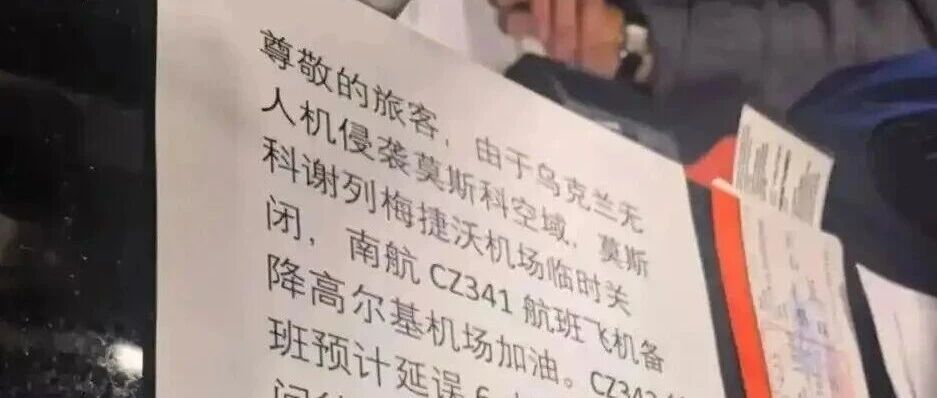 尊敬的旅客，由于乌克兰无
人机侵袭莫斯科空域，莫斯
科谢列梅捷沃机场临时关
闭，南航 CZ341 航班飞机备
降高尔基机场加油。CZ342
班预计延误 6